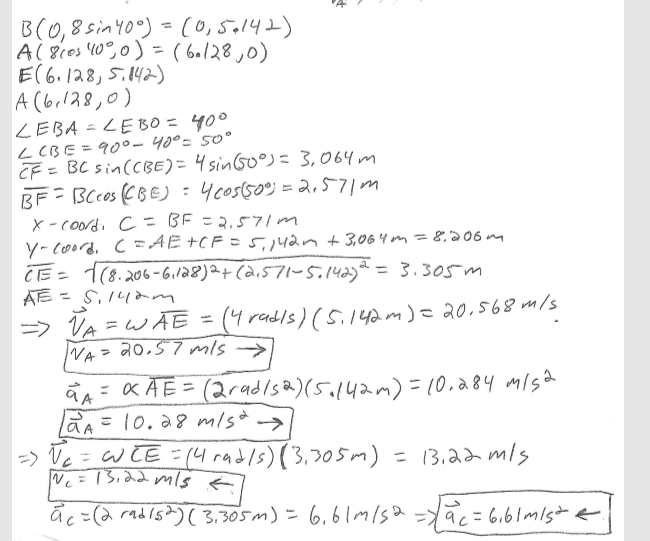 B(0, 8 sin 40°) = (0, 5.142)
A(8cos 40°, 0) = (6.128, 0)
E(6.128, 5.142)
A(6.128, 0)
∠EBA = ∠EBO = 40°
∠CBE = 90° - 40° = 50°
CF = BC sin(CBE) = 4 sin(50°) = 3.064 m
BF = BC cos(CBE) = 4 cos(50°) = 2.571 m
x-coord. C = BF = 2.571 m
y-coord. C = AE + CF = 5.142m + 3.064 m = 8.206 m
CE = √(8.206-6.128)² + (2.571-5.142)² = 3.305 m
AE = 5.142m
⇒ V⃗A = ω AE = (4 rad/s)(5.142 m) = 20.568 m/s.
VA = 20.57 m/s →
a⃗A = α AE = (2 rad/s²)(5.142m) = 10.284 m/s²
a⃗A = 10.28 m/s² →
⇒ V⃗c = ω CE = (4 rad/s)(3.305m) = 13.22 m/s
Vc = 13.22 m/s ←
a⃗c = (2 rad/s²)(3.305m) = 6.61 m/s² ⇒ a⃗c = 6.61 m/s² ←